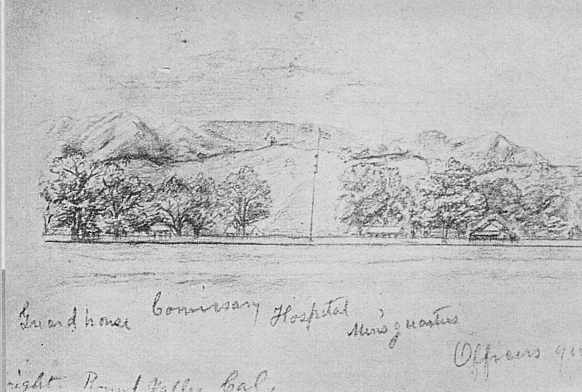 Guard house Commissary Hospital Men's quarters
Officers qu
right Round Valley Cal.